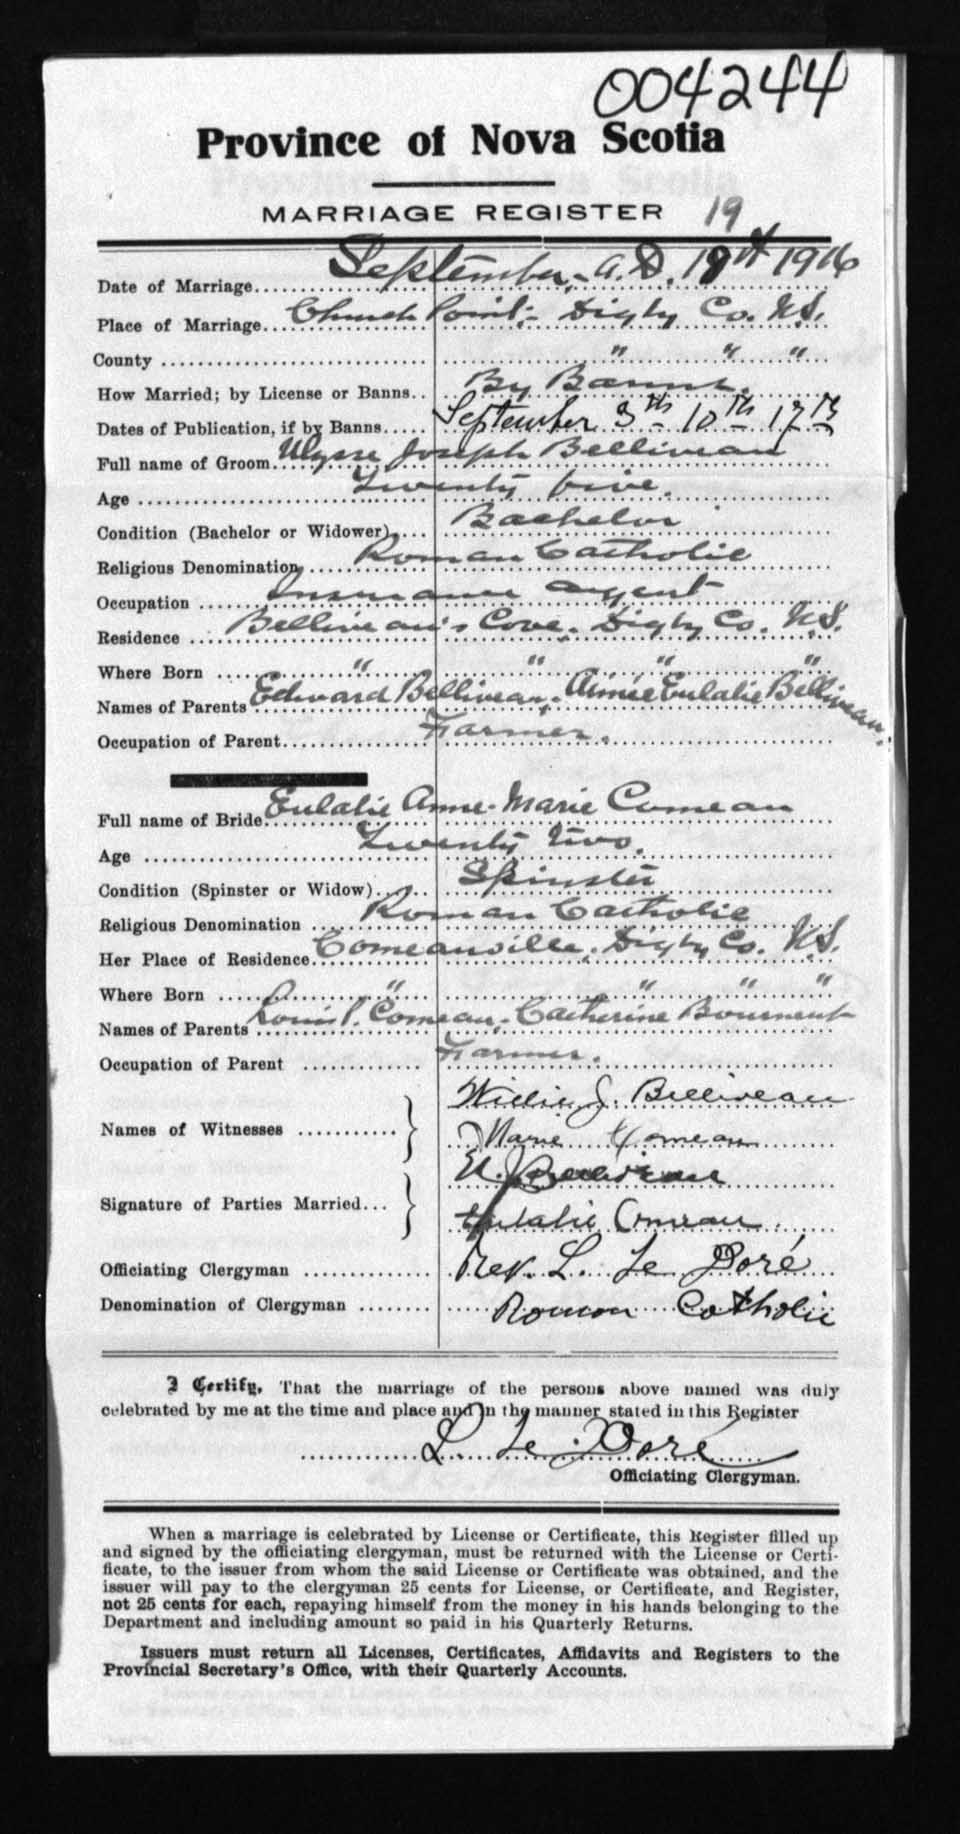 004244
Province of Nova Scotia
MARRIAGE REGISTER 19
Date of Marriage September, A.D. 19th 1916
Place of Marriage Church Point, Digby Co. N.S.
County " " "
How Married; by License or Banns By Banns.
Dates of Publication, if by Banns September 3th - 10th - 17th
Full name of Groom Ulysse Joseph Belliveau
Age Twenty five.
Condition (Bachelor or Widower) Bachelor
Religious Denomination Roman Catholic
Occupation Insurance agent
Residence Belliveau's Cove, Digby Co. N.S.
Where Born " " " "
Names of Parents Edward Belliveau, Aimée Eulalie Belliveau.
Occupation of Parent Farmer.
Full name of Bride Eulalie Anne-Marie Comeau
Age Twenty two.
Condition (Spinster or Widow) Spinster
Religious Denomination Roman Catholic
Her Place of Residence Comeauville, Digby Co. N.S.
Where Born " " " "
Names of Parents Louis P. Comeau, Catherine
Occupation of Parent Farmer.
Names of Witnesses Willie J. Belliveau
Marie Comeau
Signature of Parties Married U. J. Belliveau
Eulalie Comeau.
Officiating Clergyman Rev. L. Le Doré
Denomination of Clergyman Roman Catholic
I Certify, That the marriage of the persons above named was duly
celebrated by me at the time and place and in the manner stated in this Register
L. Le Doré
Officiating Clergyman.
When a marriage is celebrated by License or Certificate, this Register filled up
and signed by the officiating clergyman, must be returned with the License or Certi-
ficate, to the issuer from whom the said License or Certificate was obtained, and the
issuer will pay to the clergyman 25 cents for License, or Certificate, and Register,
not 25 cents for each, repaying himself from the money in his hands belonging to the
Department and including amount so paid in his Quarterly Returns.
Issuers must return all Licenses, Certificates, Affidavits and Registers to the
Provincial Secretary's Office, with their Quarterly Accounts.